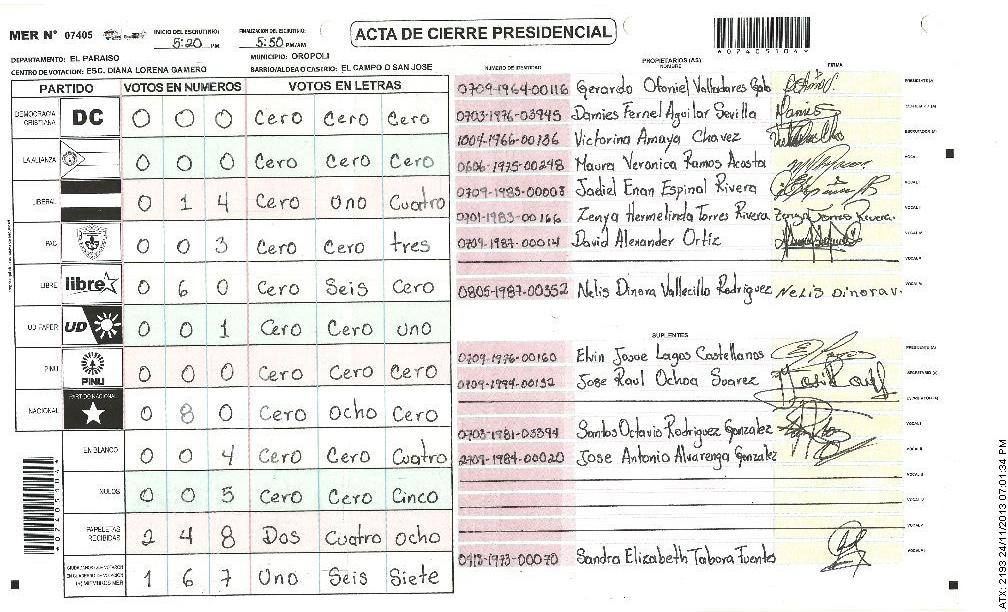 MER N° 07405
INICIO DEL ESCRUTINIO: 5:20 PM
FINALIZACION DEL ESCRUTINIO: 5:50 PM/AM
ACTA DE CIERRE PRESIDENCIAL
07405104
DEPARTAMENTO: EL PARAISO
MUNICIPIO: OROPOLI
CENTRO DE VOTACION: ESC. DIANA LORENA GAMERO
BARRIO/ALDEA O CASERIO: EL CAMPO O SAN JOSE
PARTIDO VOTOS EN NUMEROS VOTOS EN LETRAS
DEMOCRACIA CRISTIANA DC 0 0 0 Cero Cero Cero
LA ALIANZA 0 0 0 Cero Cero Cero
LIBERAL 0 1 4 Cero Uno Cuatro
PAC 0 0 3 Cero Cero tres
LIBRE libre 0 6 0 Cero Seis Cero
UD FAPER UD 0 0 1 Cero Cero uno
PINU PINU 0 0 0 Cero Cero Cero
NACIONAL PARTIDO NACIONAL 0 8 0 Cero Ocho Cero
EN BLANCO 0 0 4 Cero Cero Cuatro
NULOS 0 0 5 Cero Cero Cinco
PAPELETAS RECIBIDAS 2 4 8 Dos Cuatro ocho
1 6 7 Uno Seis Siete
PROPIETARIOS (AS)
NUMERO DE IDENTIDAD NOMBRE FIRMA
0709-1964-00116 Gerardo Otoniel Valladares PRESIDENTE(A)
0703-1976-03945 Damies Fernel Aguilar Sevilla Damies
1007-1966-00136 Victorina Amaya Chavez
0606-1975-00248 Maura Veronica Ramos Acosta
0709-1983-00003 Jadiel Enan Espinal Rivera
0701-1983-00166 Zenya Hermelinda Torres Rivera Zenya Torres Rivera.
0709-1987-00014 David Alexander Ortiz
0805-1987-00352 Nelis Dinora Vallecillo Rodriguez Nelis Dinora V.
SUPLENTES
0709-1976-00160 Elvin Josue Lagos Castellanos PRESIDENTE (A)
0709-1994-00132 Jose Raul Ochoa Suarez SECRETARIO (A)
0703-1981-03394 Santos Octavio Rodriguez Gonzalez
2709-1984-00020 Jose Antonio Alvarenga Gonzalez
0713-1973-00070 Sandra Elizabeth Tabora Fuentes
ATX: 2193 24/11/2013 07:01:34 PM